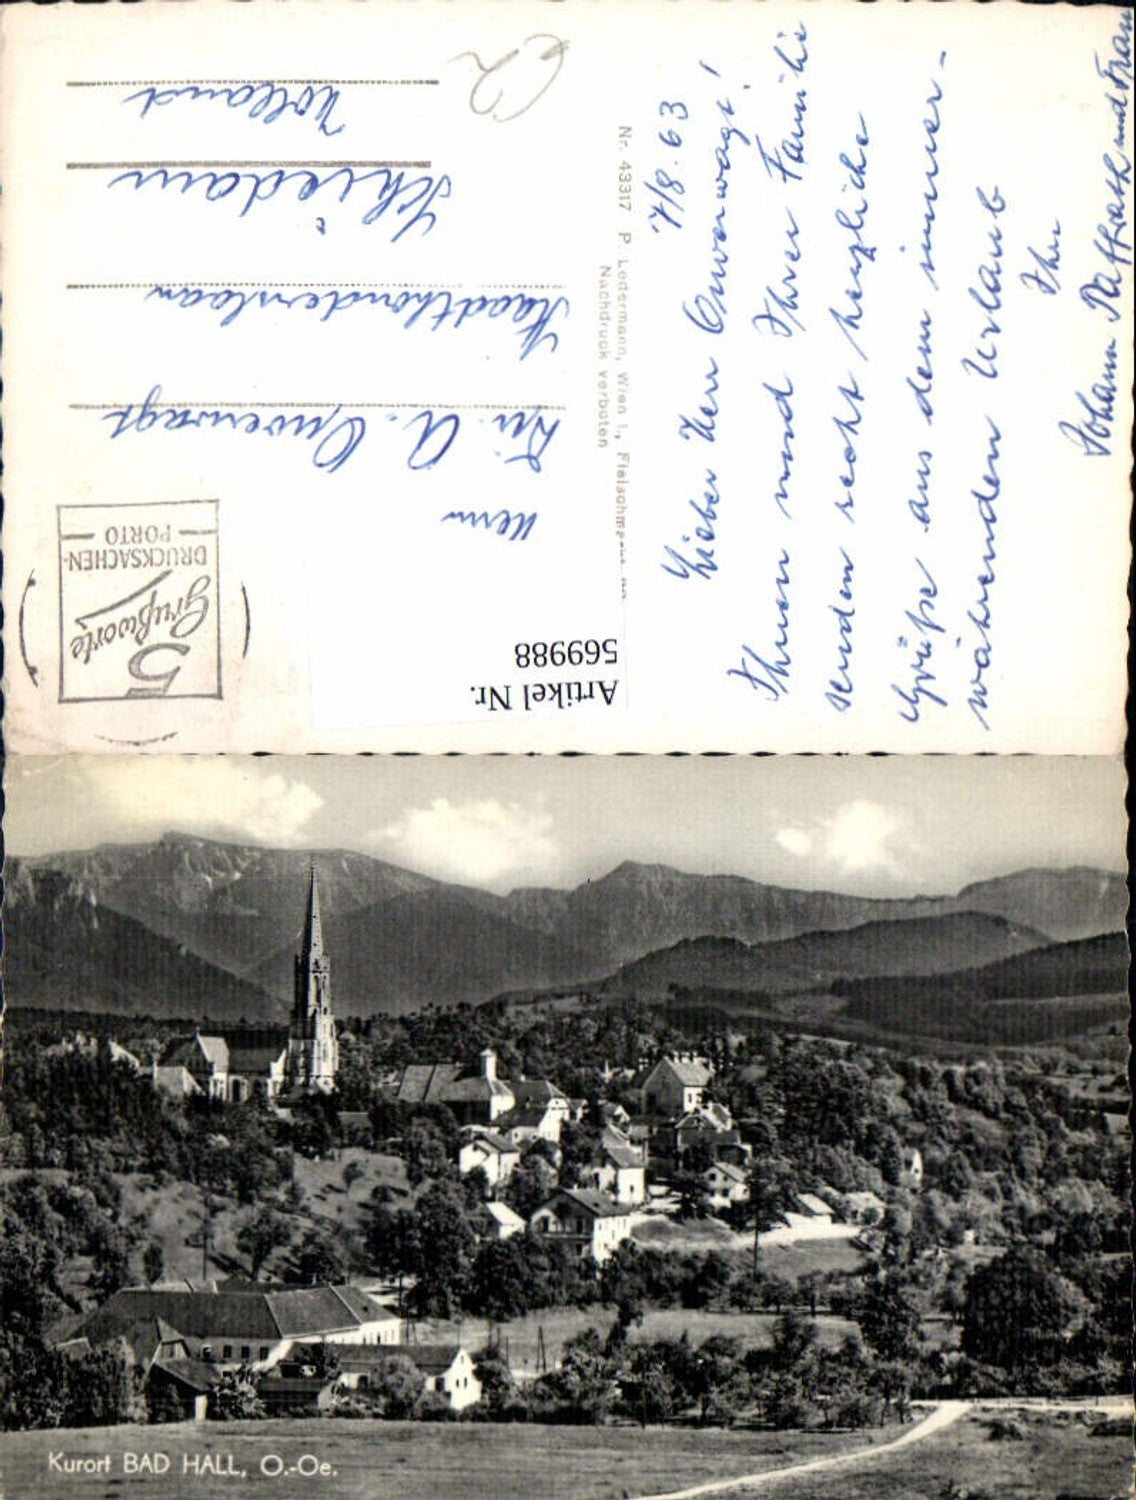 7/8.63
Lieber Herr Onverwagt!
Ihnen und Ihrer Familie
senden recht herzliche
Grüße aus dem immer-
währenden Urlaub
Ihr
Johann Paffrath und Frau
Nr. 43317 P. Ledermann, Wien I., Fleischm
Nachdruck verboten
Artikel Nr.
569988
5
Grußworte
DRUCKSACHEN-
PORTO
Herrn
A. Onverwagt
Schiedam
Holland
Kurort BAD HALL, O.-Oe.